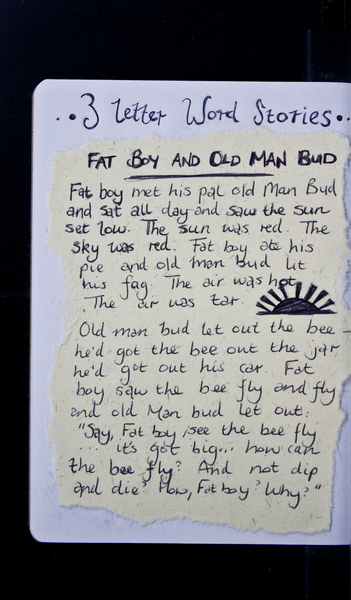 ..3 letter Word Stories..
FAT BOY AND OLD MAN BUD
Fat boy met his pal old Man Bud
and sat all day and saw the sun
set low. The sun was red. The
sky was red. Fat boy ate his
pie and old man bud lit
his fag. The air was hot.
The air was tar.
Old man bud let out the bee -
he'd got the bee out the jar
he'd got out his car. Fat
boy saw the bee fly and fly
and old Man bud let out:
"Say, Fat boy, see the bee fly
... it's got big... how can
the bee fly? And not dip
and die? How, Fat boy? Why?"